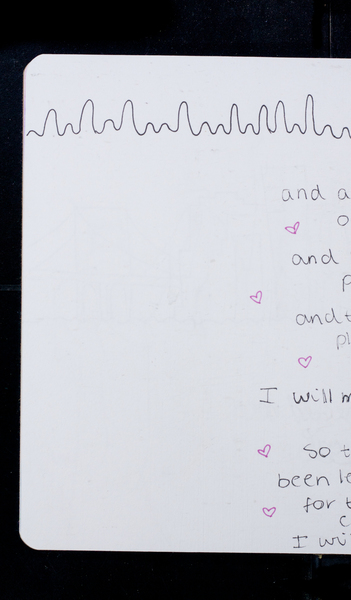 and a
o
and
p
and t
pl
I will m
so t
been le
for t
c
I wi